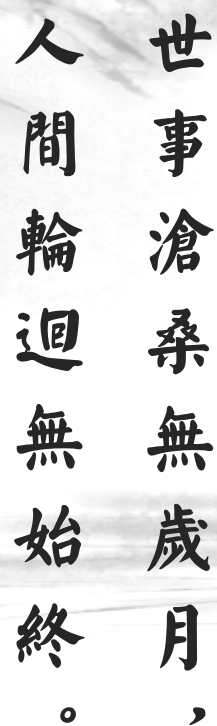 世事滄桑無歲月，
人間輪迴無始終。